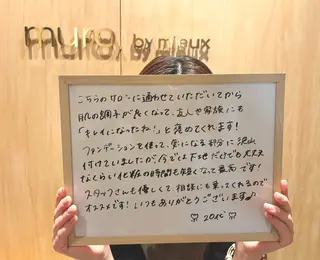 muro by m'aux
こちらのサロンに通わせていただいてから
肌の調子が良くなって、友人や家族にも
「キレイになったね!」と褒めてくれます!
ファンデーションを使って、気になる部分に沢山
付けていましたが、今では下地だけでも大丈夫
なくらい化粧の時間も短くなって最高です!
スタッフさんも優しくて相談にも乗ってくれるので
オススメです!いつもありがとうございます♪
20代